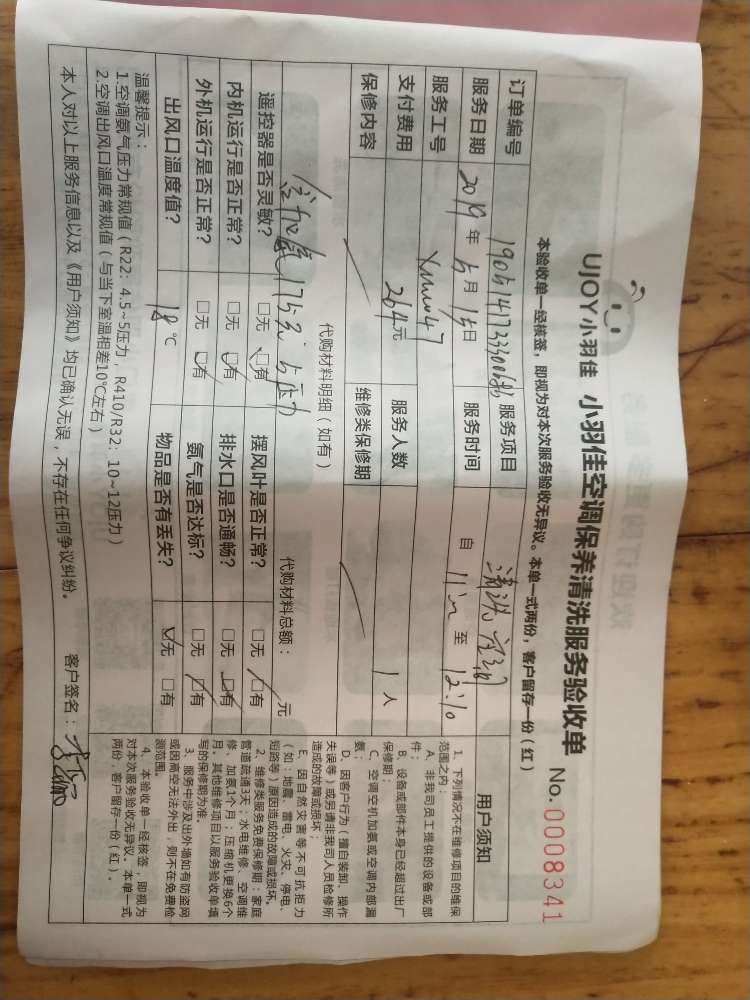 UJOY小羽佳 小羽佳空调保养清洗服务验收单
No. 0008341
本验收单一经核签，即视为对本次服务验收无异议。本单一式两份，客户留存一份（红）
订单编号 服务项目 清洗
服务日期 2019年5月15日 服务时间 自 至 12:10
服务工号 Xmw047
支付费用 264元 服务人数 1人
保修内容 维修类保修期
代购材料明细（如有） 代购材料总额： 元
加氨175元 5压力
遥控器是否灵敏? □无 □有 摆风叶是否正常? □无 □有
内机运行是否正常? □无 □有 排水口是否通畅? □无 □有
外机运行是否正常? □无 □有 氨气是否达标? □无 □有
出风口温度值? 18℃ 物品是否有丢失? □无 □有
温馨提示：
1.空调氨气压力常规值（R22：4.5~5压力，R410/R32：10~12压力）
2.空调出风口温度常规值（与当下室温相差10℃左右）
本人对以上服务信息以及《用户须知》均已确认无误，不存在任何争议纠纷。
客户签名：
用户须知
1、下列情况不在维修项目的维保
范围之内：
A、非我司员工提供的设备或部
件；
B、设备或部件本身已经超过出厂
保修期；
C、空调空机加氨或空调内部漏
氨；
D、因客户行为（擅自装卸、操作
失误等）或另请非我司人员检修所
造成的故障或损坏；
E、因自然灾害等不可抗拒力
（如：地震、雷电、火灾、停电、
短路等）原因造成的故障或损坏。
2、维修类服务免费保修期：家庭
管道疏通3天；水电维修、空调维
修、加氨1个月；压缩机更换6个
月。其他维修项目以服务验收单填
写的保修期为准。
3、服务中涉及出外墙如有防盗网
或因高空无法外出，则不在免费检
测范围。
4、本验收单一经核签，即视为
对本次服务验收无异议。本单一式
两份，客户留存一份（红）。